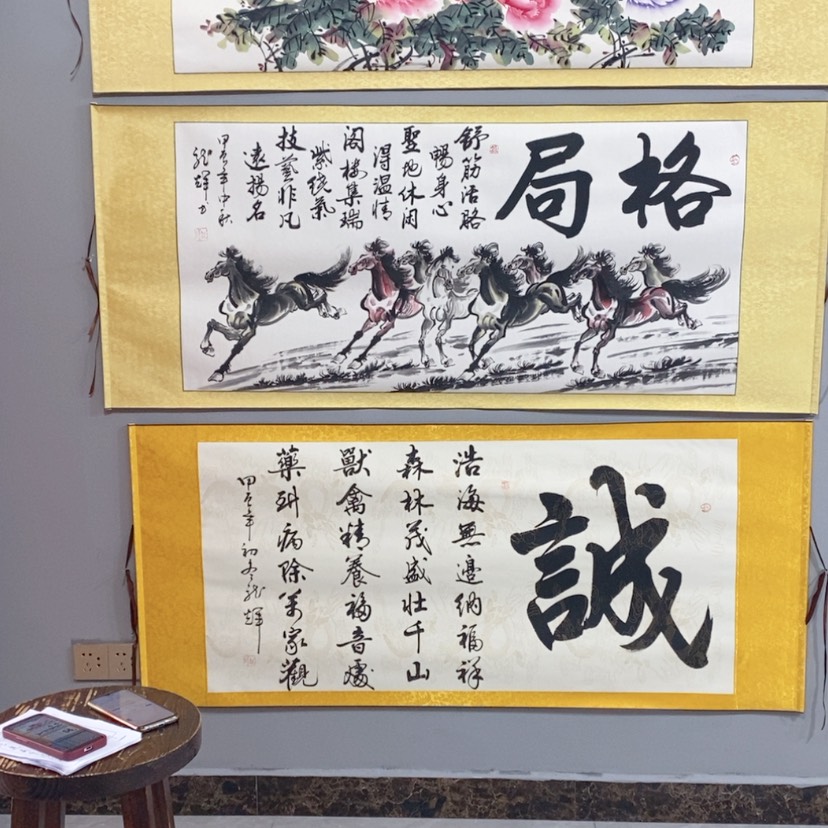 格局
舒筋活胳
暢身心
聖地休闲
得温情
阁楼集瑞
紫绕氣
技藝非凡
遠揚名
甲辰年中秋
龙輝书
誠
浩海無邊纳福祥
森林茂盛壮千山
獸禽精養福音處
藥到病除萬家觀
甲辰年初冬龙輝